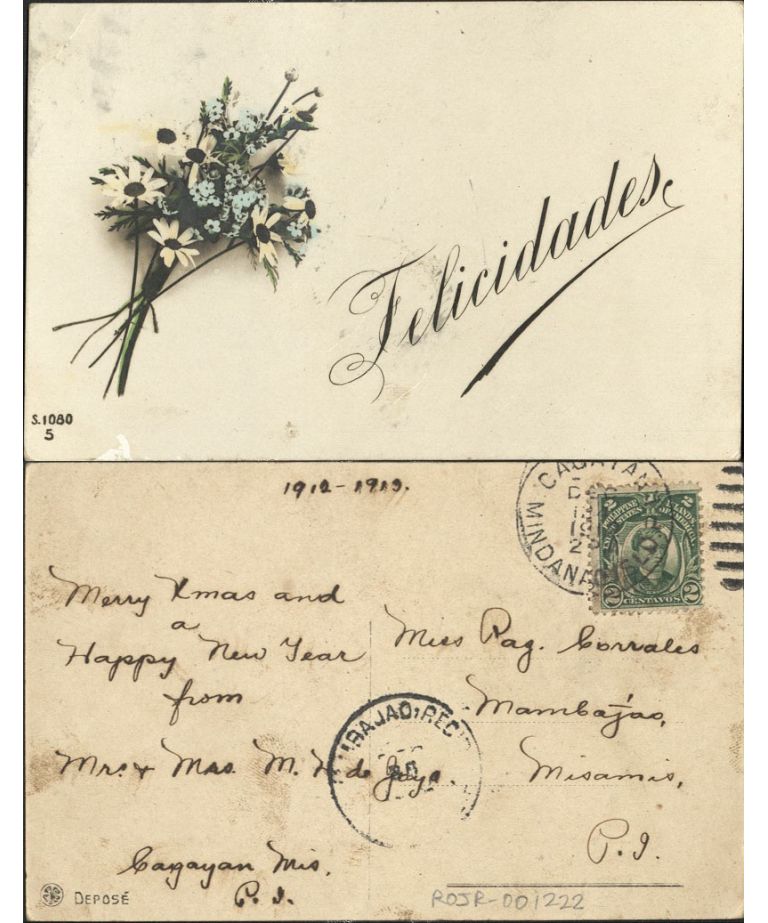 Felicidades.
S.1080
5
1912-1913.
CAGAYAN
MINDANAO
2 PHILIPPINE ISLANDS 2
UNITED STATES OF AMERICA
2 CENTAVOS 2
Merry Xmas and
a
Happy New Year
from
Mrs. + Mrs. M. de
Cagayan Mis.
P. I.
Miss Pag. Corrales
Mambajao,
Misamis,
P. I.
MBAJAO, REC'
DEPOSÉ
ROJR-001222